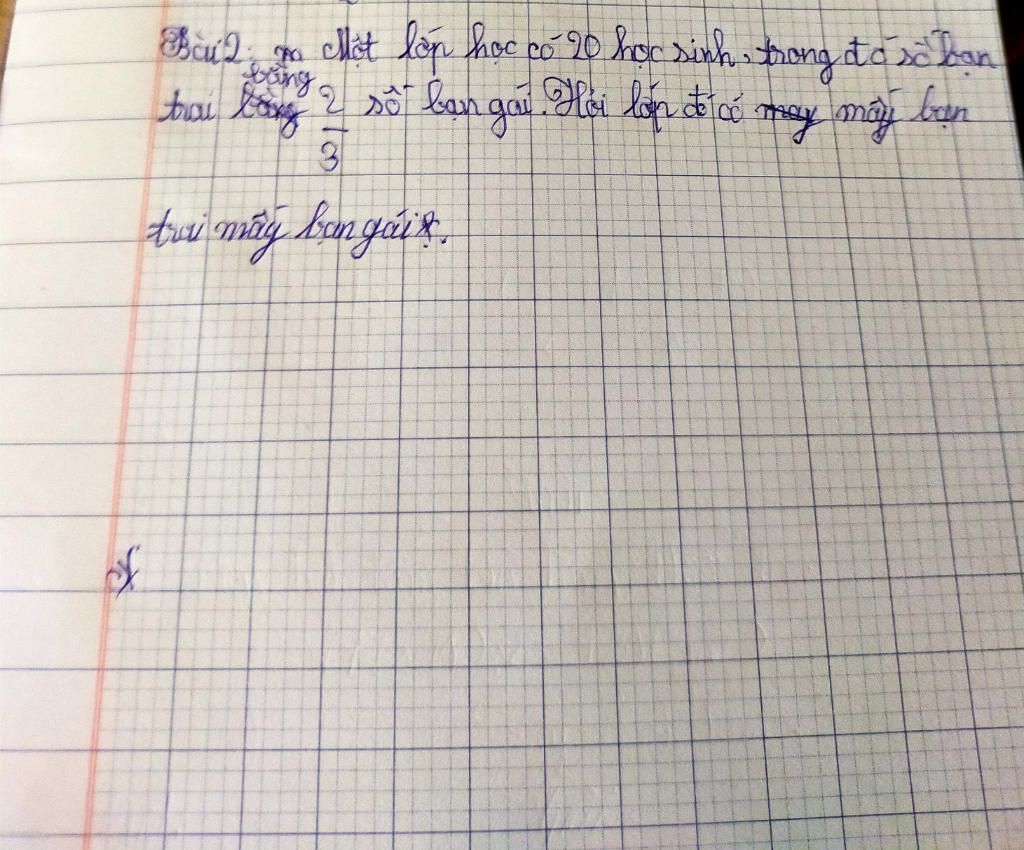 Bài 2: Một lớp học có 20 học sinh, trong đó số bạn
trai bằng 2/3 số bạn gái. Hỏi lớp đó có mấy bạn
trai mấy bạn gái.